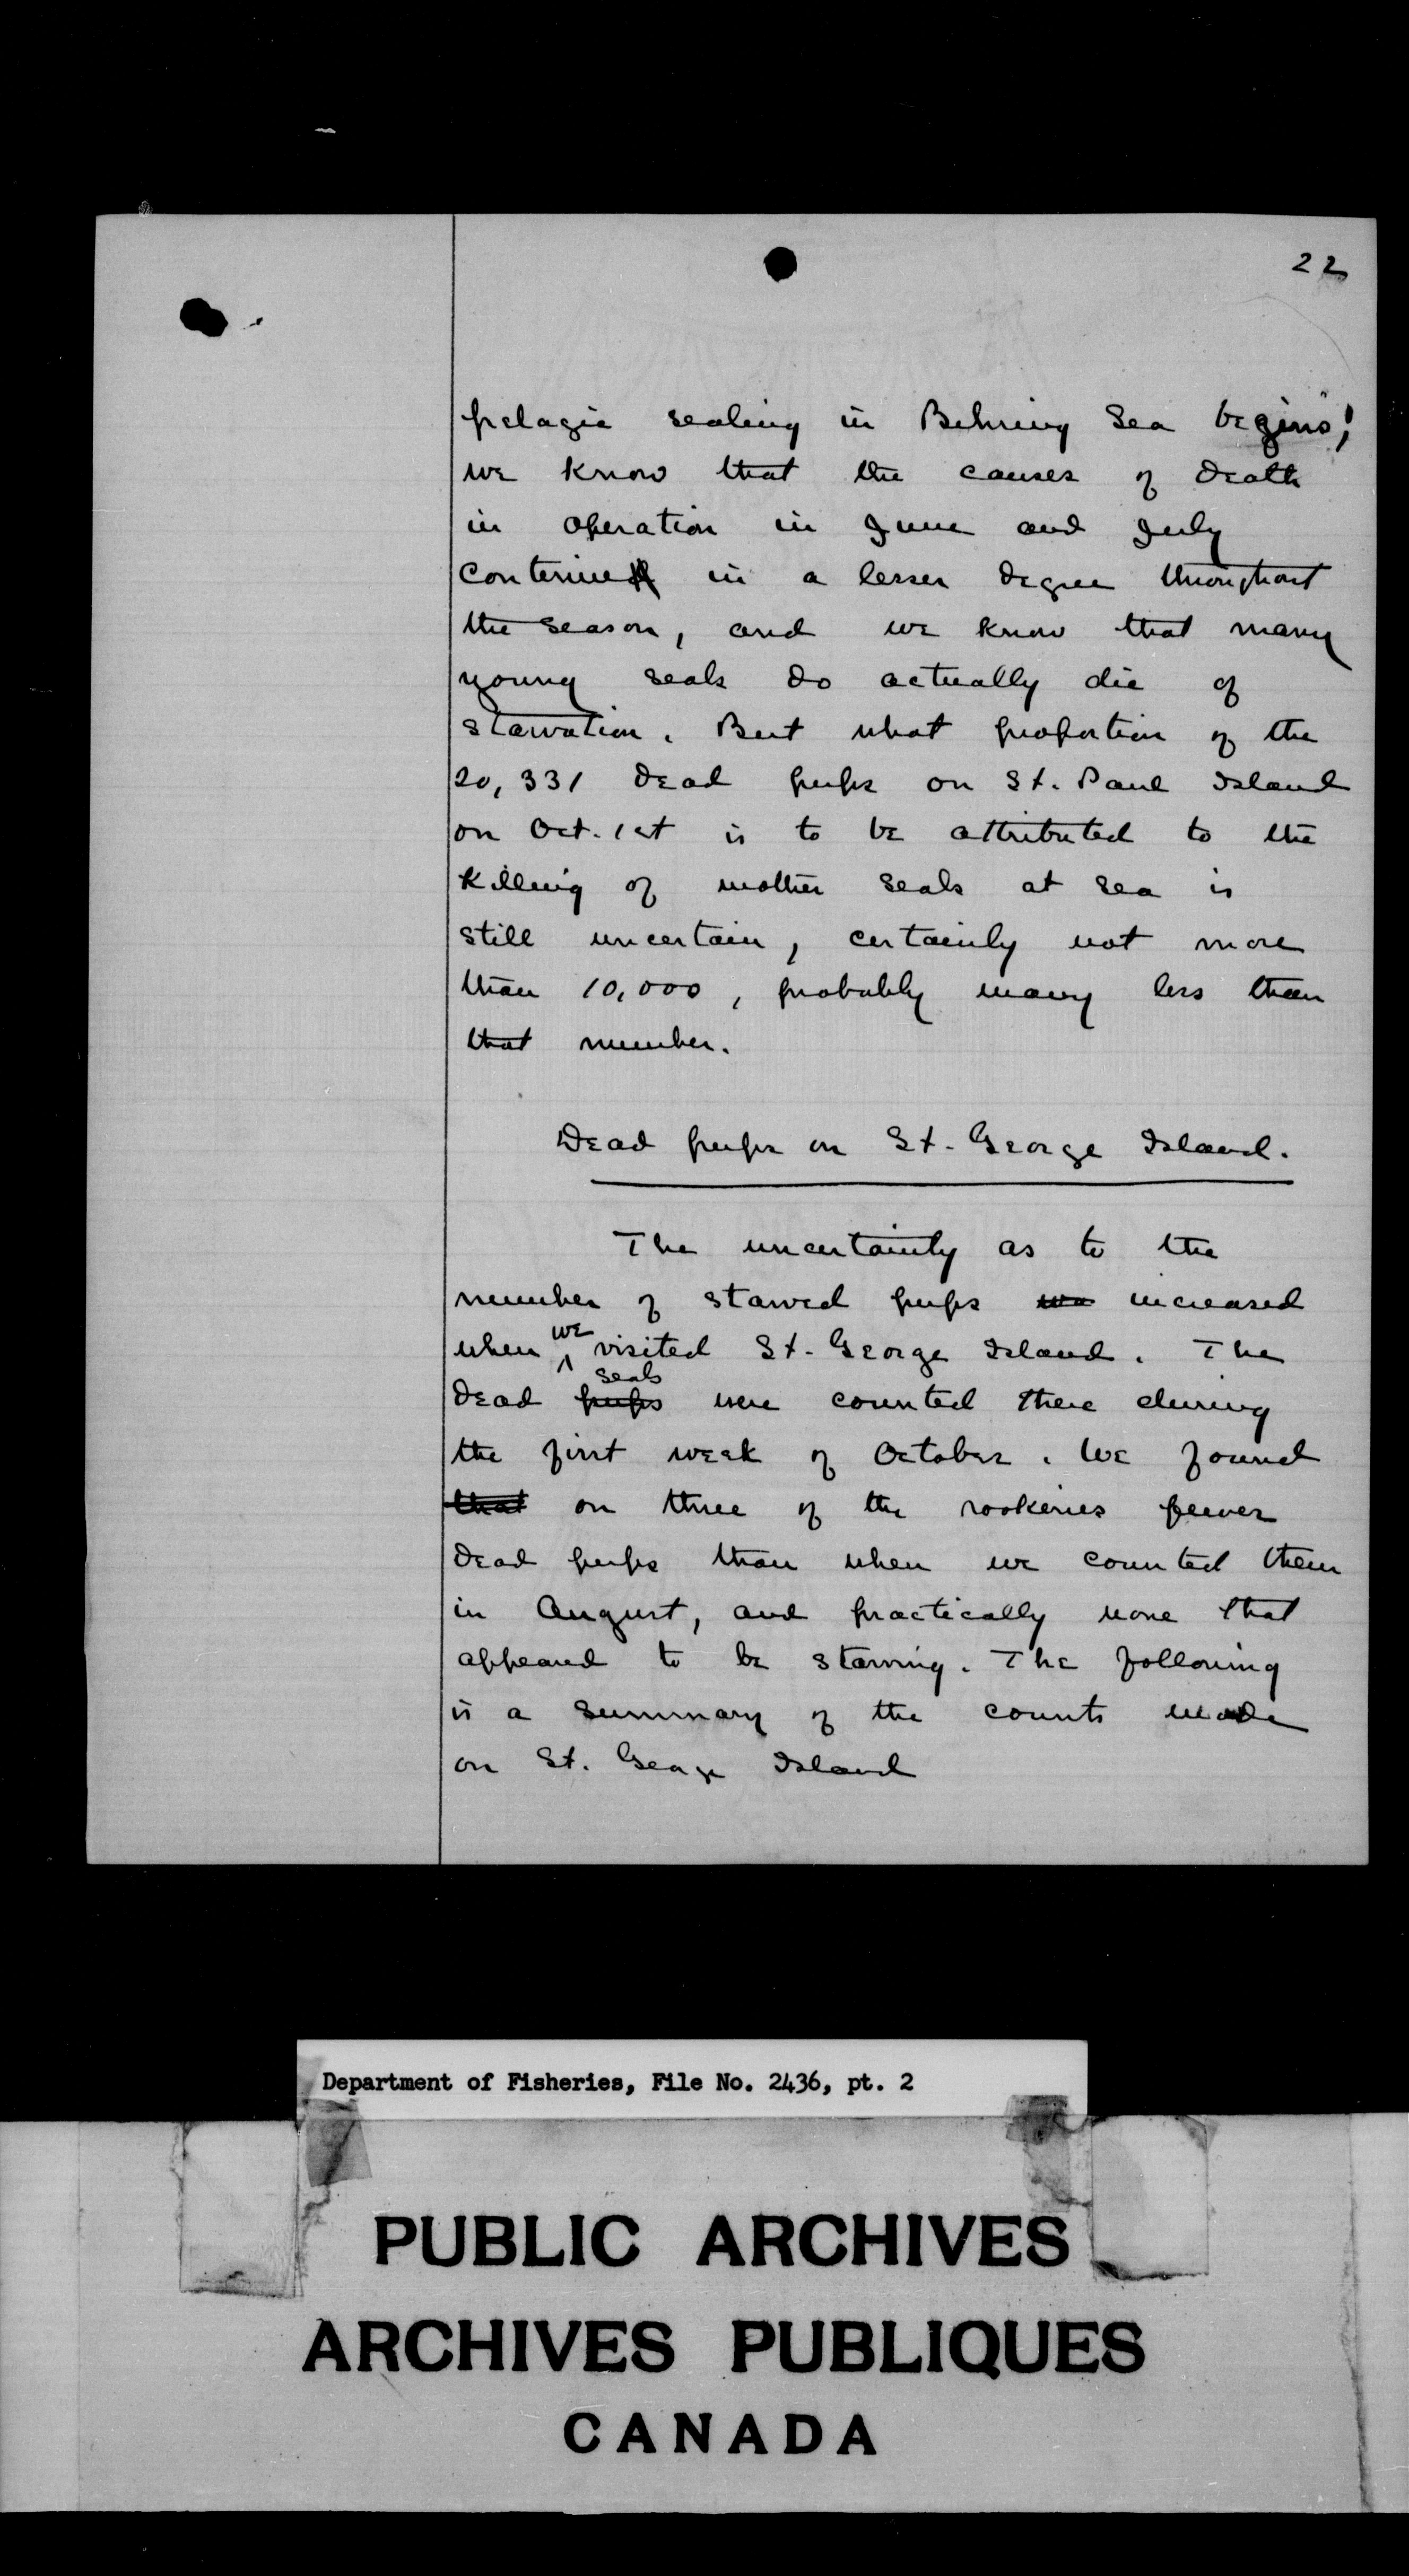 22
pelagic sealing in Behring Sea begins;
we know that the causes of death
in operation in June and July
continue in a lesser degree throughout
the season, and we know that many
young seals do actually die of
starvation. But what proportion of the
20,331 dead pups on St. Paul Island
on Oct. 1st is to be attributed to the
killing of mother seals at sea is
still uncertain, certainly not more
than 10,000, probably many less than
that number.
Dead pups on St. George Island.
The uncertainty as to the
number of starved pups increased
when we visited St. George Island. The
dead pups seals were counted there during
the first week of October. We found
that on three of the rookeries fewer
dead pups than when we counted them
in August, and practically none that
appeared to be starving. The following
is a summary of the counts made
on St. George Island
Department of Fisheries, File No. 2436, pt. 2
PUBLIC ARCHIVES
ARCHIVES PUBLIQUES
CANADA